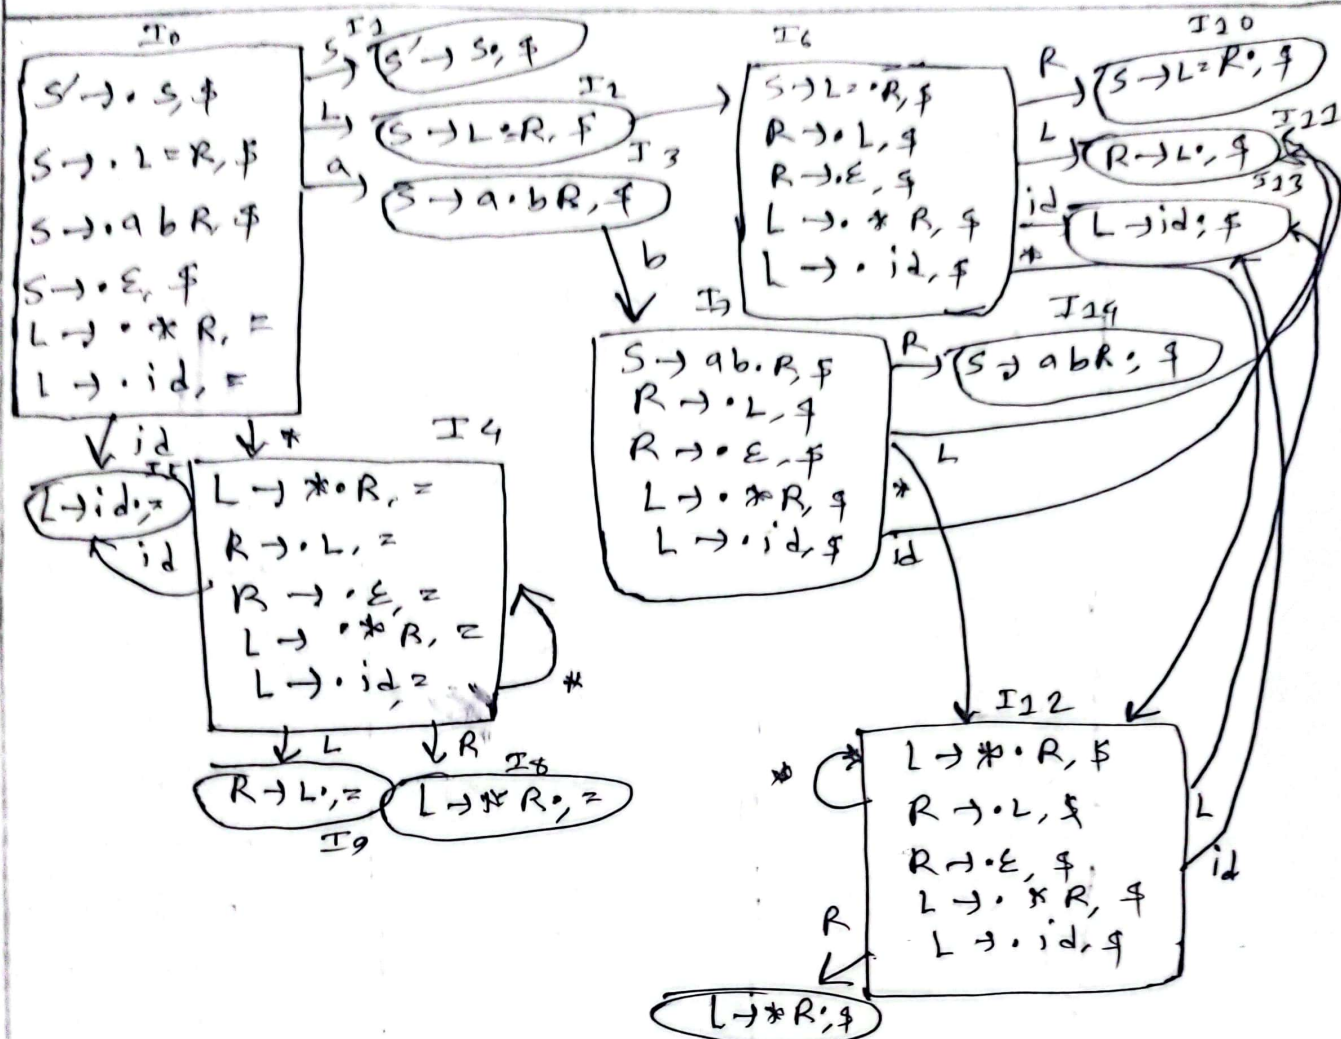 I0
S' → · S, $
S → · L = R, $
S → · a b R, $
S → · ε, $
L → · * R, =
L → · id, =
S
I1
S' → S·, $
L
I2
S → L · = R, $
a
I3
S → a · b R, $
b
I6
S → L = · R, $
R → · L, $
R → · ε, $
L → · * R, $
L → · id, $
R
I10
S → L = R·, $
L
I11
R → L·, $
id
I13
L → id·, $
*
I7
S → ab · R, $
R → · L, $
R → · ε, $
L → · * R, $
L → · id, $
R
I14
S → a b R·, $
L
*
id
id
I5
L → id·, =
*
I4
L → * · R, =
R → · L, =
R → · ε, =
L → · * R, =
L → · id, =
id
*
L
R → L·, =
I9
R
I8
L → * R·, =
I12
L → * · R, $
R → · L, $
R → · ε, $
L → · * R, $
L → · id, $
*
L
id
R
L → * R·, $